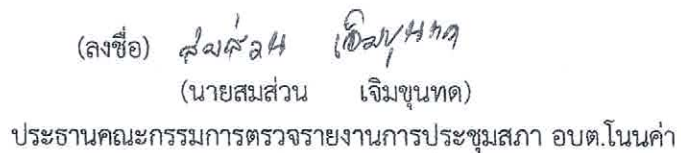 (ลงชื่อ) สมส่วน เจิมขุนทด
(นายสมส่วน เจิมขุนทด)
ประธานคณะกรรมการตรวจรายงานการประชุมสภา อบต.โนนค่า